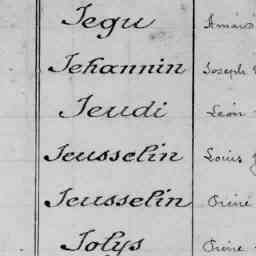 Jegu Amand
Jehannin Joseph
Jeudi Léon
Jeusselin Louis
Jeusselin
Jolys